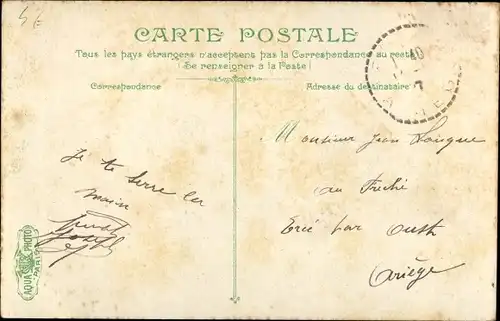 CARTE POSTALE
Tous les pays étrangers n'acceptent pas la Correspondance au recto
(Se renseigner à la Poste)
Correspondance
Adresse du destinataire
10
7
Monsieur Jean
Je te serre la
au
main
par Oust
Joseph
Ariège
AQUA PHOTO
PARIS